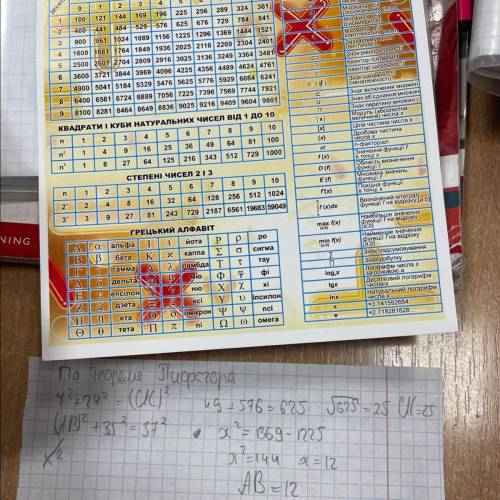 ДЕСЯТКИ
0 1 2 3 4 5 6 7 8 9
1 100 121 144 169 196 225 256 289 324 361
2 400 441 484 529 576 625 676 729 784 841
3 900 961 1024 1089 1156 1225 1296 1369 1444 1521
4 1600 1681 1764 1849 1936 2025 2116 2209 2304 2401
5 2500 2601 2704 2809 2916 3025 3136 3249 3364 3481
6 3600 3721 3844 3969 4096 4225 4356 4489 4624 4761
7 4900 5041 5184 5329 5476 5625 5776 5929 6084 6241
8 6400 6561 6724 6889 7056 7225 7396 7569 7744 7921
9 8100 8281 8464 8649 8836 9025 9216 9409 9604 9801
КВАДРАТИ І КУБИ НАТУРАЛЬНИХ ЧИСЕЛ ВІД 1 ДО 10
n 1 2 3 4 5 6 7 8 9 10
n² 1 4 9 16 25 36 49 64 81 100
n³ 1 8 27 64 125 216 343 512 729 1000
СТЕПЕНІ ЧИСЕЛ 2 І 3
n 1 2 3 4 5 6 7 8 9 10
2ⁿ 2 4 8 16 32 64 128 256 512 1024
3ⁿ 3 9 27 81 243 729 2187 6561 19683 59049
ГРЕЦЬКИЙ АЛФАВІТ
Α α альфа Ι ι йота Ρ ρ ро
Β β бета Κ κ каппа Σ σ сигма
Γ γ гамма Λ λ лямбда Τ τ тау
Δ δ дельта Μ μ мю Φ φ фі
Ε ε епсілон Ν ν ню Χ χ хі
Ζ ζ дзета Ξ ξ ксі Υ υ іпсилон
Η η ета Ο ο омікрон Ψ ψ псі
Θ θ тета Π π пі Ω ω омега
Знак рівносильності
Квантор існування
Квантор загальності
Знак належності (неналежності)
Знак включення множин
Знак об'єднання множин
Знак перетину множин
|x| Модуль (абсолютна величина) числа x
[x] Ціла частина числа x
{x} Дробова частина числа x
n! n-факторіал
f(x) Значення функції f в точці x
D(f) Область визначення функції f
E(f) Множина значень функції f
f'(x) Похідна функції f в точці x
∫f(x)dx Визначений інтеграл функції f на відрізку [a;b]
max f(x) [a;b] Найбільше значення функції f на відрізку [a;b]
min f(x) [a;b] Найменше значення функції f на відрізку [a;b]
Σ Знак підсумовування
Знак добутку
logₐx Логарифм числа x за основою a
lgx Десятковий логарифм числа x
lnx Натуральний логарифм числа x
π ≈3,141592654
e ≈2,718281828
NING
По теореме Пифагора
7²+24² = (СК)² 49+576=625 √625=25 СК=25
(АВ)²+35²=37² x²=1369-1225
x²=144 x=12
АВ=12